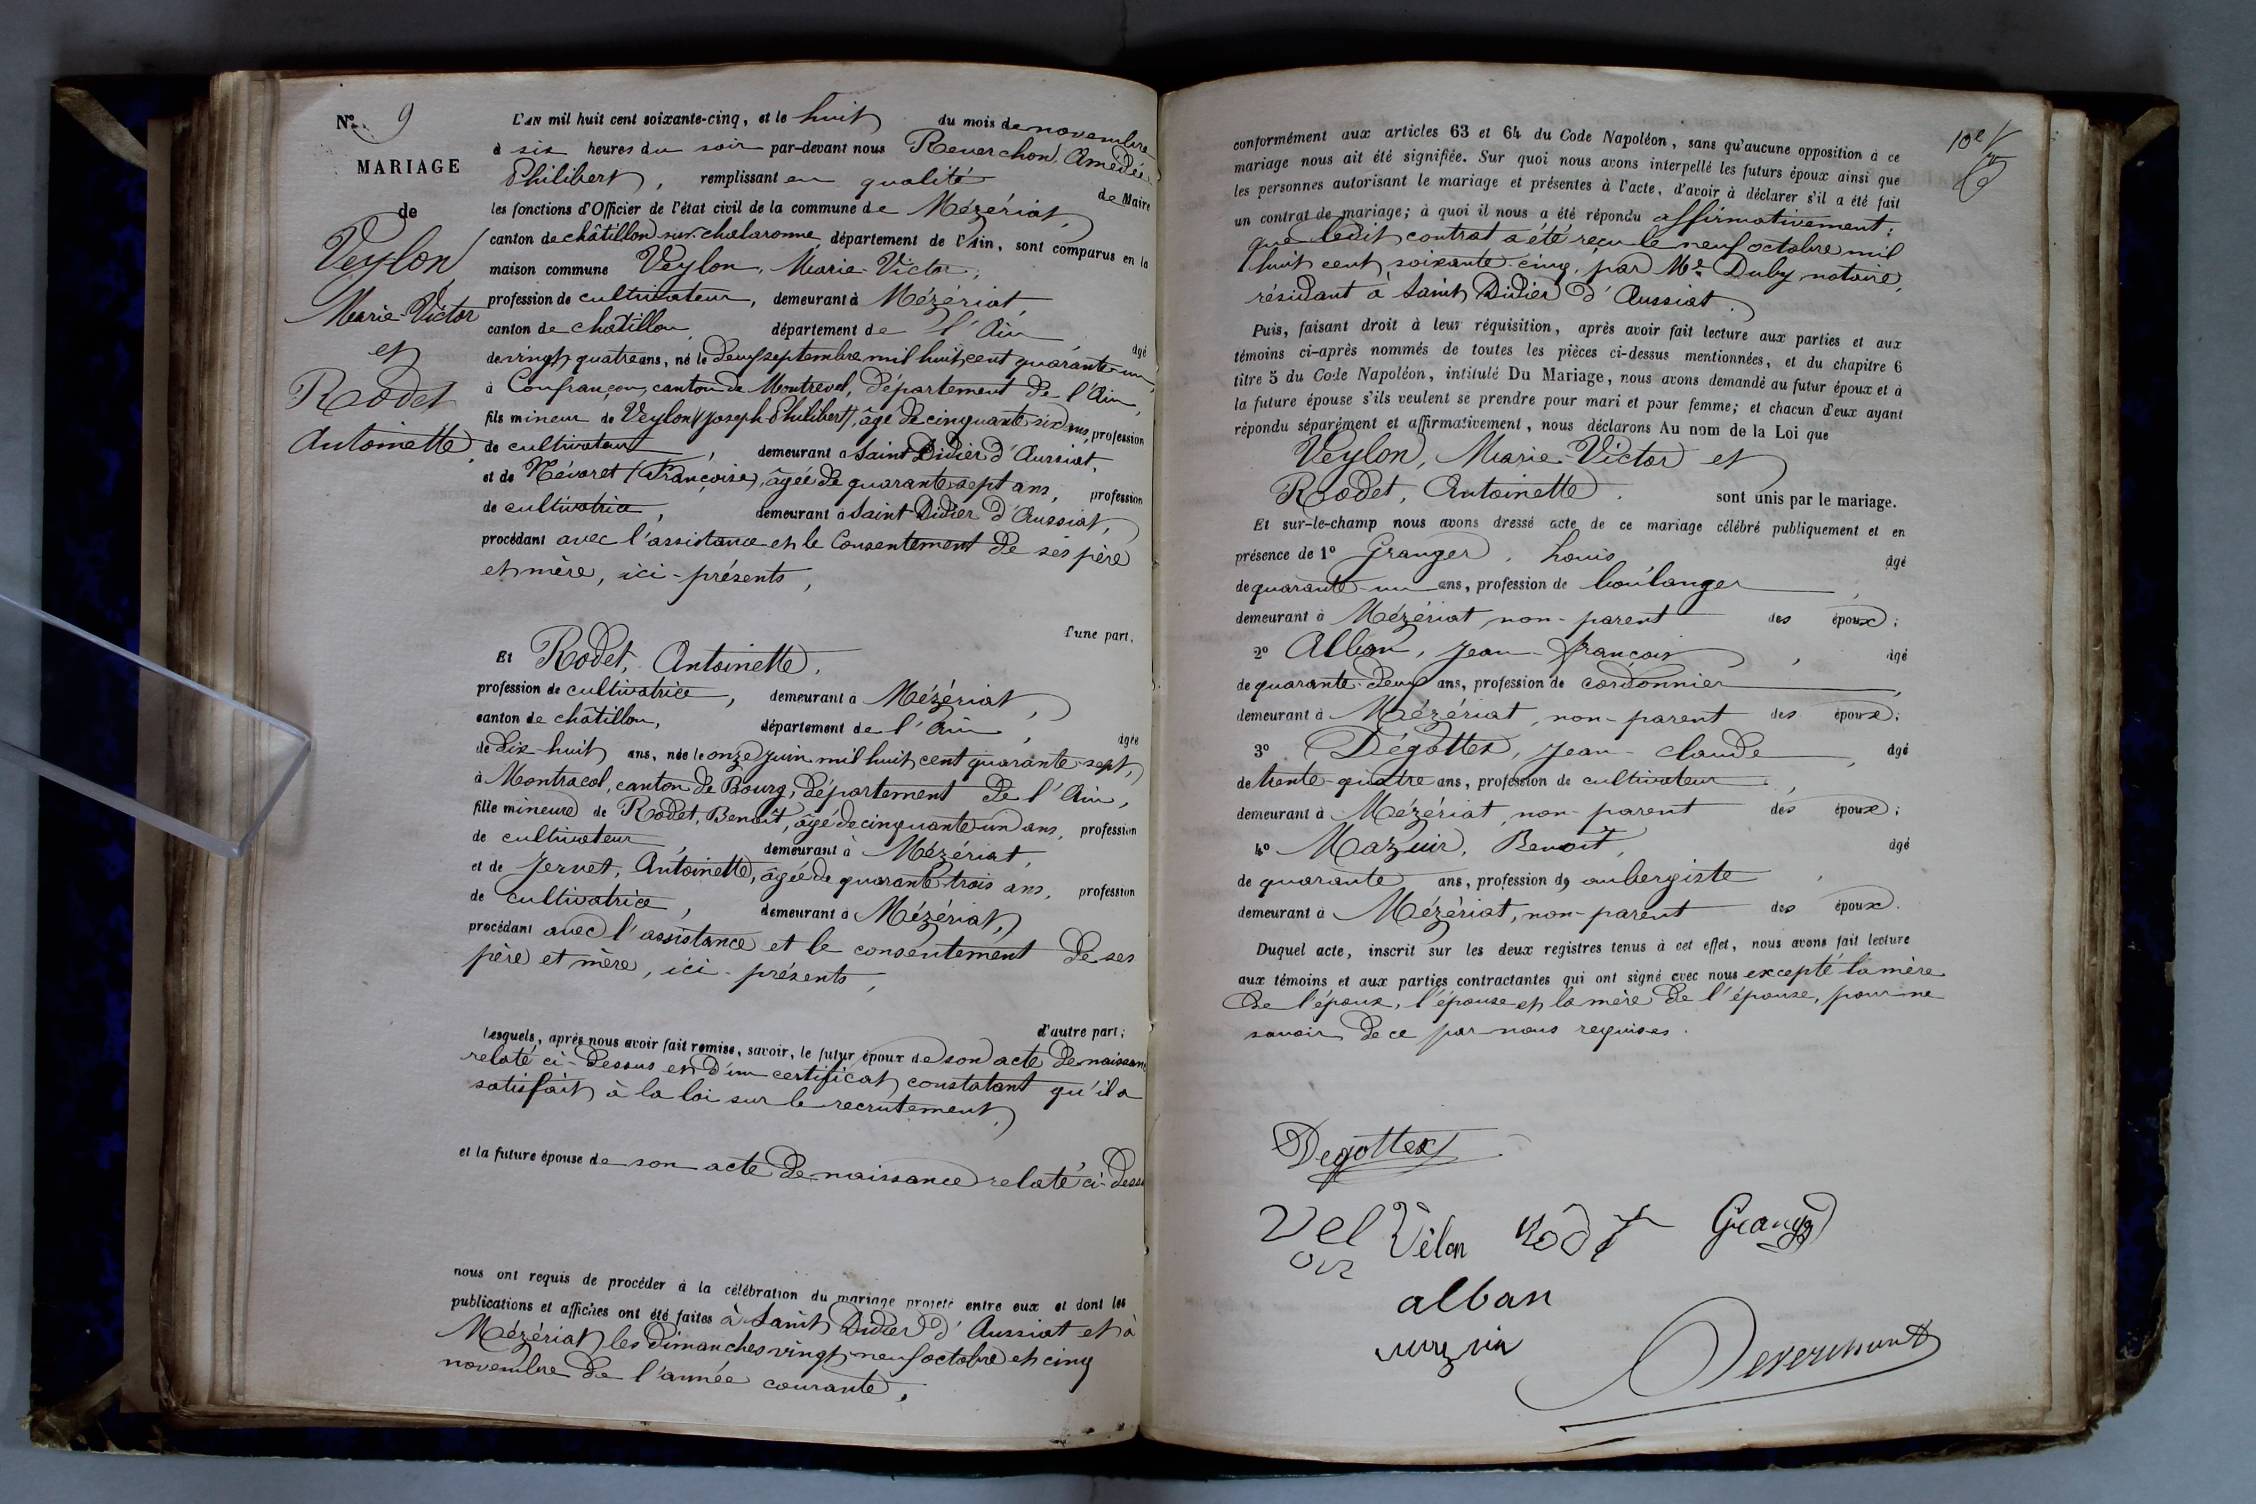 No. 9
MARIAGE
de
Veylon
Marie-Victor
et
Rodet
Antoinette
L'AN mil huit cent soixante-cinq, et le huit du mois de novembre
à six heures du soir par-devant nous Reverchon Amédée
Philibert, remplissant en qualité de Maire
les fonctions d'Officier de l'état civil de la commune de Mézériat,
canton de châtillon-sur-chalaronne département de l'Ain, sont comparus en la
maison commune Veylon, Marie-Victor,
profession de cultivateur, demeurant à Mézériat,
canton de châtillon, département de l'Ain, âgé
de vingt quatre ans, né le deux septembre mil huit cent quarante-un,
à Confrançon, canton de Montrevel, département de l'Ain,
fils mineur de Veylon (Joseph-Philibert), âgé de cinquante-six ans, profession
de cultivateur, demeurant à Saint Didier d'Aussiat,
et de Névoret (Françoise), âgée de quarante-sept ans, profession
de cultivatrice, demeurant à Saint Didier d'Aussiat,
procédant avec l'assistance et le Consentement de ses père
et mère, ici-présents,
d'une part.
Et Rodet, Antoinette,
profession de cultivatrice, demeurant à Mézériat,
canton de châtillon, département de l'Ain, âgée
de dix-huit ans, née le onze juin mil huit cent quarante-sept,
à Montracol, canton de Bourg, département de l'Ain,
fille mineure de Rodet, Benoit, âgé de cinquante-un ans, profession
de cultivateur, demeurant à Mézériat,
et de Jervet, Antoinette, âgée de quarante trois ans, profession
de cultivatrice, demeurant à Mézériat,
procédant avec l'assistance et le consentement de ses
père et mère, ici-présents,
d'autre part;
lesquels, après nous avoir fait remise, savoir, le futur époux de son acte de naissance
relaté ci-dessus et d'un certificat constatant qu'il a
satisfait à la loi sur le recrutement,
et la future épouse de son acte de naissance relaté ci-dess
nous ont requis de procéder à la célébration du mariage projeté entre eux et dont les
publications et affiches ont été faites à Saint Didier d'Aussiat et à
Mézériat les dimanches vingt-neuf octobre et cinq
novembre de l'année courante,
10e
conformément aux articles 63 et 64 du Code Napoléon, sans qu'aucune opposition à ce
mariage nous ait été signifiée. Sur quoi nous avons interpellé les futurs époux ainsi que
les personnes autorisant le mariage et présentes à l'acte, d'avoir à déclarer s'il a été fait
un contrat de mariage; à quoi il nous a été répondu affirmativement;
que ledit contrat a été reçu le neuf octobre mil
huit cent soixante-cinq, par Me Duby, notaire,
résidant à Saint Didier d'Aussiat
Puis, faisant droit à leur réquisition, après avoir fait lecture aux parties et aux
témoins ci-après nommés de toutes les pièces ci-dessus mentionnées, et du chapitre 6
titre 5 du Code Napoléon, intitulé Du Mariage, nous avons demandé au futur époux et à
la future épouse s'ils veulent se prendre pour mari et pour femme; et chacun d'eux ayant
répondu séparément et affirmativement, nous déclarons Au nom de la Loi que
Veylon, Marie-Victor et
Rodet, Antoinette, sont unis par le mariage.
Et sur-le-champ nous avons dressé acte de ce mariage célébré publiquement et en
présence de 1° Granger, Louis âgé
de quarante-un ans, profession de boulanger,
demeurant à Mézériat, non-parent des époux;
2° Alban, Jean-François, âgé
de quarante-deux ans, profession de cordonnier,
demeurant à Mézériat, non-parent des époux;
3° Dégottex, Jean-claude, âgé
de trente-quatre ans, profession de cultivateur,
demeurant à Mézériat, non-parent des époux;
4° Mazuir, Benoit, âgé
de quarante ans, profession de aubergiste,
demeurant à Mézériat, non-parent des époux.
Duquel acte, inscrit sur les deux registres tenus à cet effet, nous avons fait lecture
aux témoins et aux parties contractantes qui ont signé avec nous excepté la mère
de l'époux, l'épouse et la mère de l'épouse, pour ne
savoir de ce par nous requises.
Degottex
Vel Vélon Rodet Grange
on
alban
mazuir
Reverchon